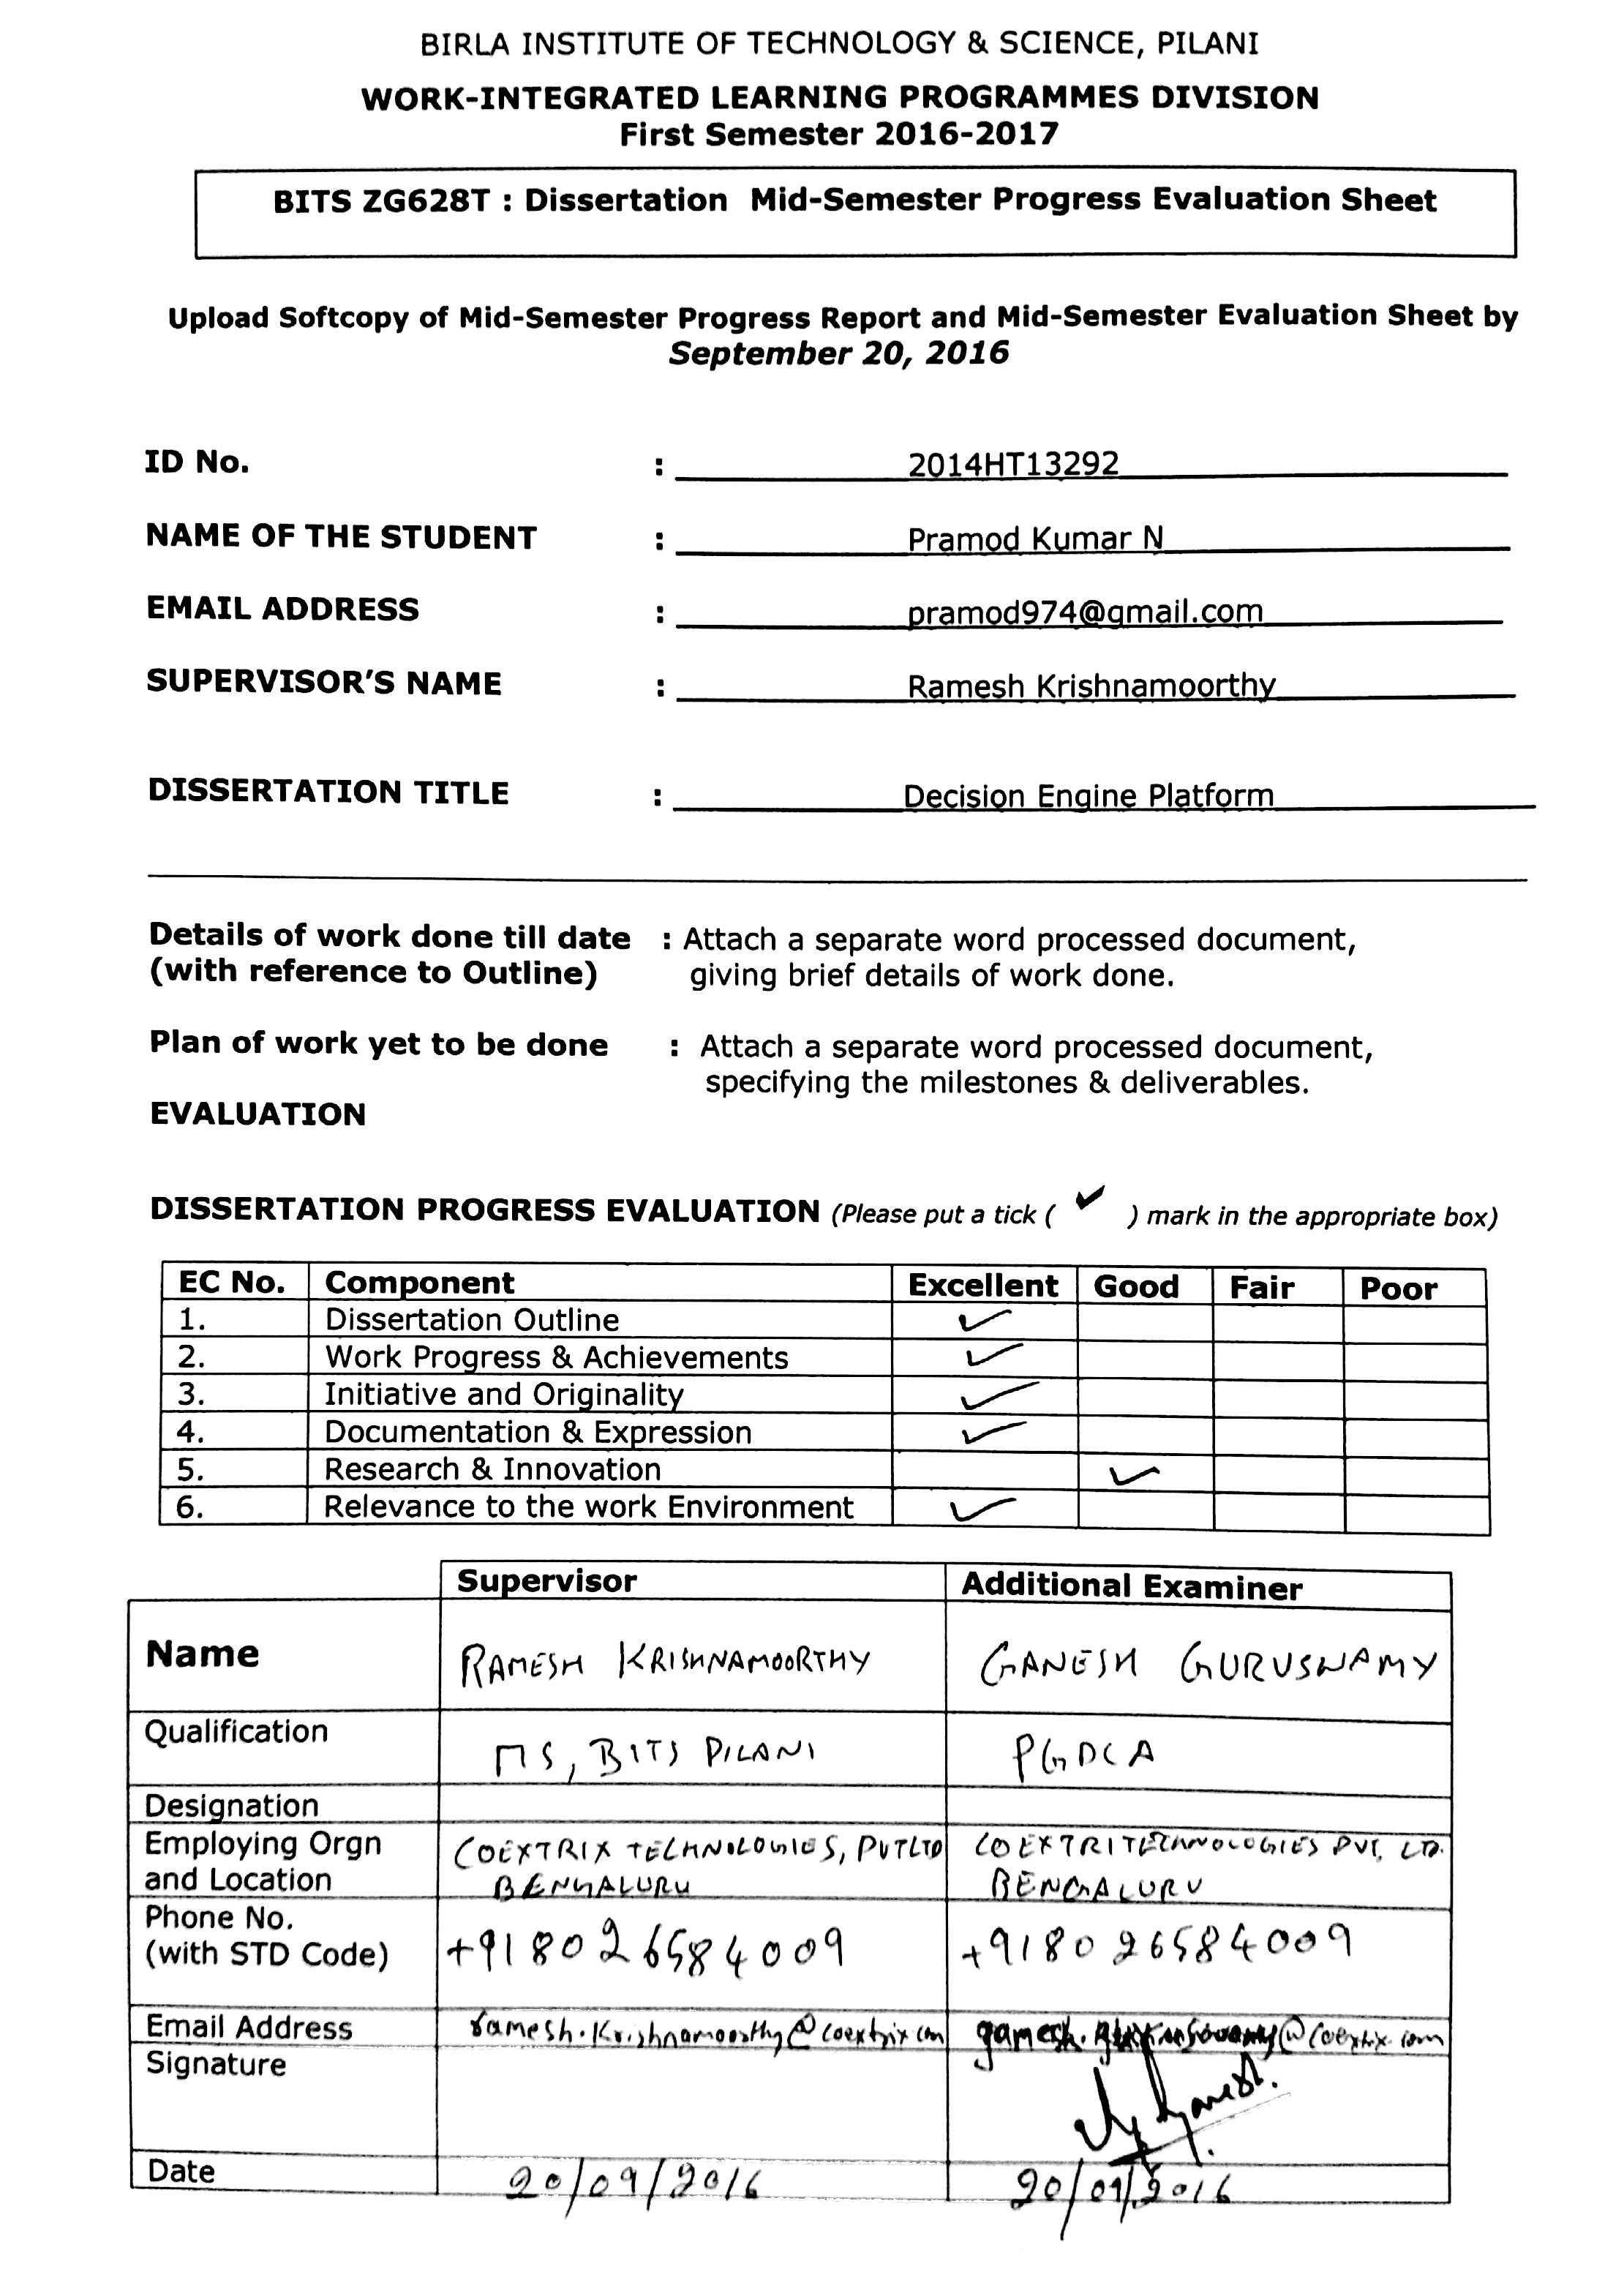 BIRLA INSTITUTE OF TECHNOLOGY & SCIENCE, PILANI
WORK-INTEGRATED LEARNING PROGRAMMES DIVISION
First Semester 2016-2017
BITS ZG628T : Dissertation Mid-Semester Progress Evaluation Sheet
Upload Softcopy of Mid-Semester Progress Report and Mid-Semester Evaluation Sheet by
September 20, 2016
ID No. : 2014HT13292
NAME OF THE STUDENT : Pramod Kumar N
EMAIL ADDRESS : pramod974@gmail.com
SUPERVISOR'S NAME : Ramesh Krishnamoorthy
DISSERTATION TITLE : Decision Engine Platform
Details of work done till date : Attach a separate word processed document,
(with reference to Outline) giving brief details of work done.
Plan of work yet to be done : Attach a separate word processed document,
specifying the milestones & deliverables.
EVALUATION
DISSERTATION PROGRESS EVALUATION (Please put a tick ( ✔ ) mark in the appropriate box)
EC No. Component Excellent Good Fair Poor
1. Dissertation Outline ✓
2. Work Progress & Achievements ✓
3. Initiative and Originality ✓
4. Documentation & Expression ✓
5. Research & Innovation ✓
6. Relevance to the work Environment ✓
Supervisor Additional Examiner
Name RAMESH KRISHNAMOORTHY GANESH GURUSWAMY
Qualification MS, BITS PILANI PGDCA
Designation
Employing Orgn COEXTRIX TECHNOLOGIES, PVTLTD COEXTRITECHNOLOGIES PVT, LTD.
and Location BENGALURU BENGALURU
Phone No.
(with STD Code) +918026584009 +918026584009
Email Address ramesh.Krishnamoorthy@coextrix com
Signature Ganesh.
Date 20/09/2016 20/09/2016